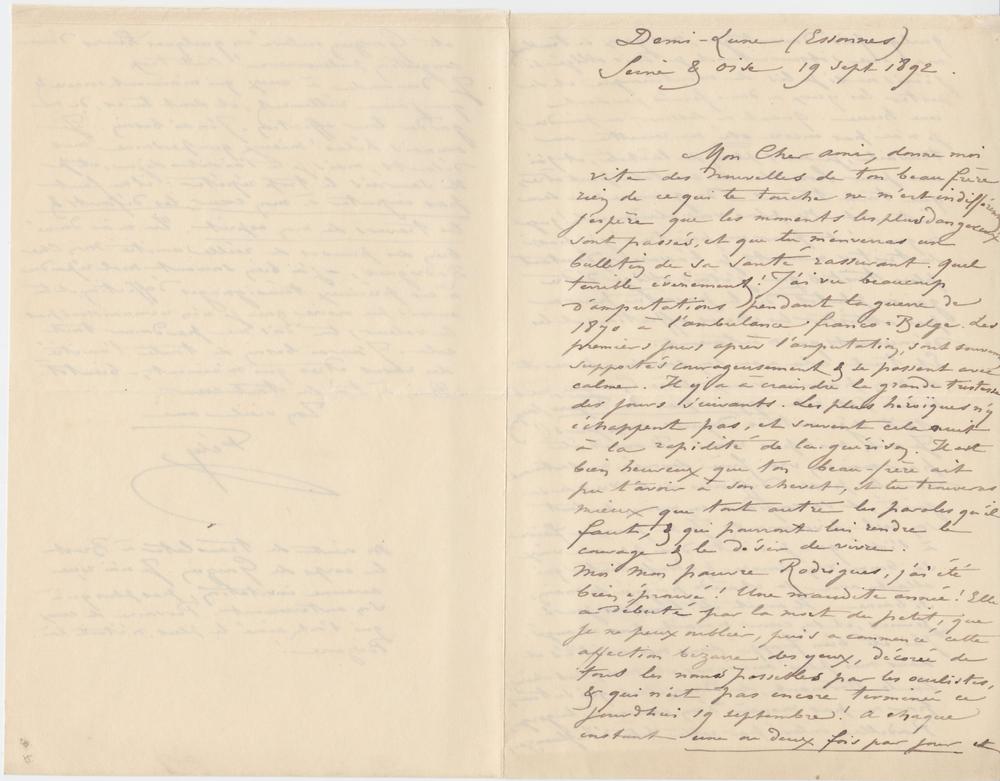 Demi-Lune (Essonnes)
Seine & Oise 19 Sept 1892.
Mon Cher ami, donne moi
vite des nouvelles de ton beau frère
rien de ce qui te touche ne m'est indifférent
j'espère que les moments les plus dangereux
sont passés, et que tu m'enverras un
bulletin de sa santé rassurant. Quel
terrible évènement! J'ai vu beaucoup
d'amputations pendant la guerre de
1870 à l'ambulance franco-Belge. Les
premiers jours après l'amputation, sont souvent
supportés courageusement & se passent avec
calme. Il y a à craindre la grande tristesse
des jours suivants. Les plus héroïques n'y
échappent pas, et souvent cela nuit
à la rapidité de la guérison. Il est
bien heureux que ton beau-frère ait
pu t'avoir à son chevet, et tu trouveras
mieux que tout autre les paroles qu'il
faut, & qui pourront lui rendre le
courage & le désir de vivre.
Moi mon pauvre Rodrigues, j'ai été
bien éprouvé! Une maudite année! Elle
a débuté par la mort du petit, que
je ne peux oublier, puis a commencé cette
affection bizarre des yeux, décorée de
tous les noms possibles par les oculistes,
& qui n'est pas encore terminée ce
jourdhui 19 septembre! A chaque
instant une ou deux fois par jour et